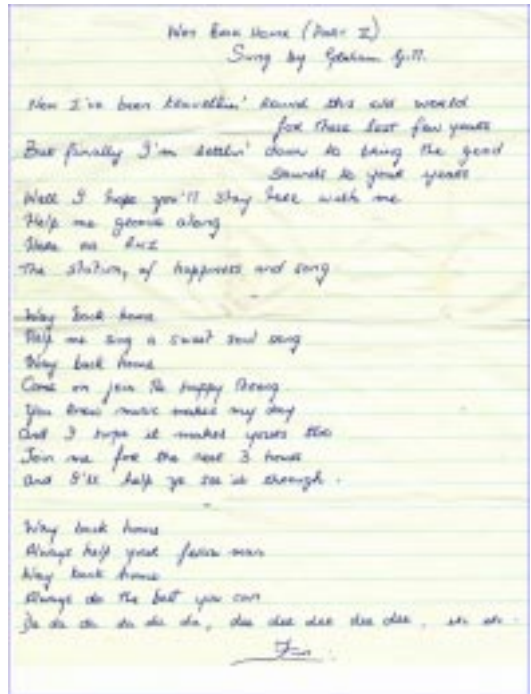 Way Back Home (Part II)
Sung by Graham Gill.
Now I've been travellin' round this old world
for these last few years
But finally I'm settlin' down to bring the good
sounds to your years
Well I hope you'll stay here with me
Help me groove along
Here on RNI
The station, of happiness and song
Way back home
Help me sing a sweet soul song
Way back home
Come on join the happy throng
You know music makes my day
And I hope it makes yours too
Join me for the next 3 hours
and I'll help ya see it through.
Way back home
Always help your fellow man
Way back home
Always do the best you can
Da da da da da da, dee dee dee dee dee,